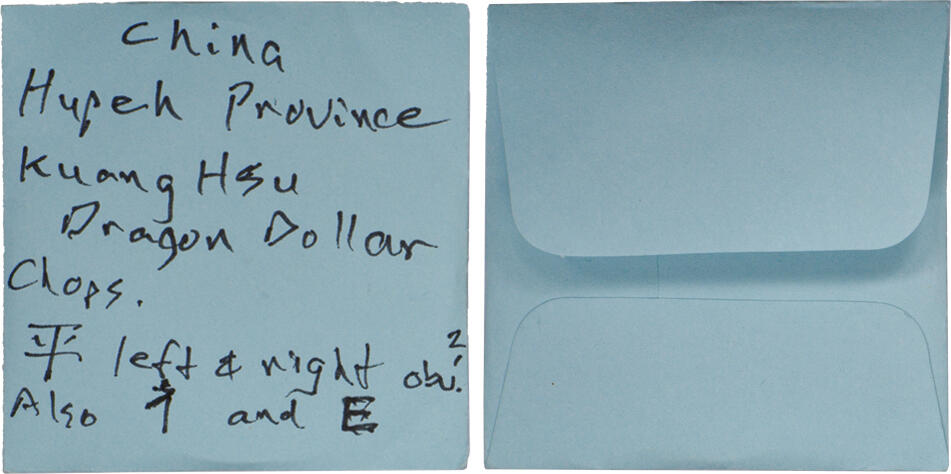 China
Hupeh Province
Kuang Hsu
Dragon Dollar
Chops.
平 left & right obv.²
Also and E